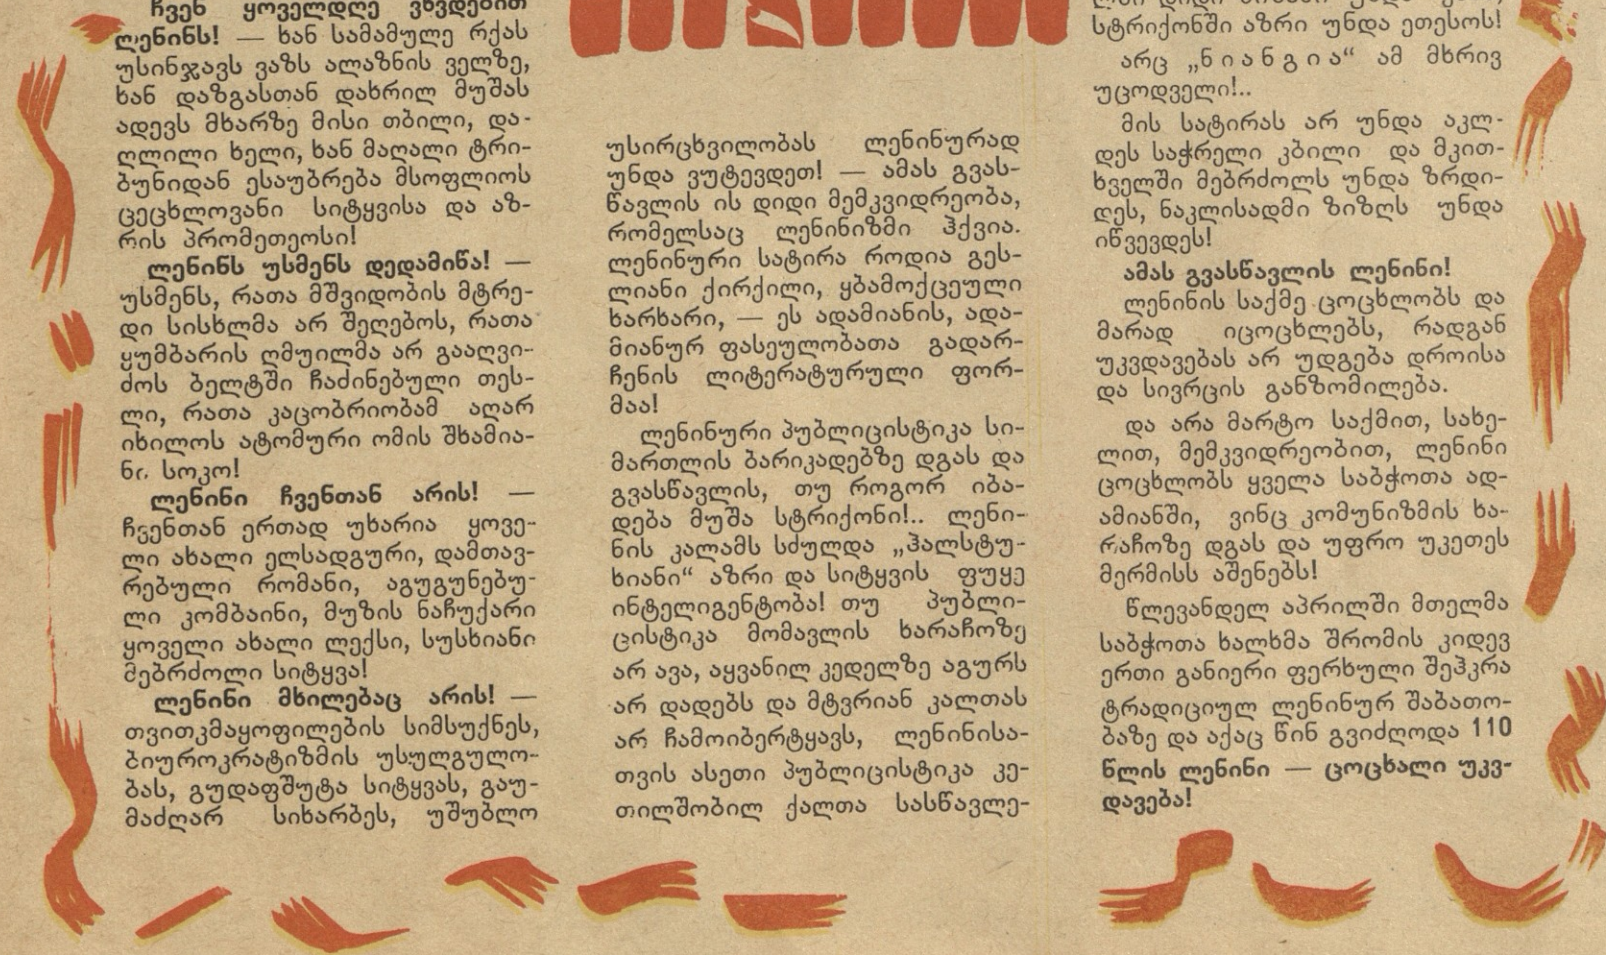 ჩვენ ყოველდღე ვხვდებით
ლენინს! — ხან სამამულე რქას
უსინჯავს ვაზს ალაზნის ველზე,
ხან დაზგასთან დახრილ მუშას
ადევს მხარზე მისი თბილი, და-
ღლილი ხელი, ხან მაღალი ტრი-
ბუნიდან ესაუბრება მსოფლიოს
ცეცხლოვანი სიტყვისა და აზ-
რის პრომეთეოსი!
ლენინს უსმენს დედამიწა! —
უსმენს, რათა მშვიდობის მტრე-
დი სისხლმა არ შეღებოს, რათა
ყუმბარის ღმუილმა არ გააღვი-
ძოს ბელტში ჩაძინებული თეს-
ლი, რათა კაცობრიობამ აღარ
იხილოს ატომური ომის შხამია-
ნი სოკო!
ლენინი ჩვენთან არის! —
ჩვენთან ერთად უხარია ყოვე-
ლი ახალი ელსადგური, დამთავ-
რებული რომანი, აგუგუნებუ-
ლი კომბაინი, მუზის ნაჩუქარი
ყოველი ახალი ლექსი, სუსხიანი
მებრძოლი სიტყვა!
ლენინი მხილებაც არის! —
თვითკმაყოფილების სიმსუქნეს,
ბიუროკრატიზმის უსულგულო-
ბას, გუდაფშუტა სიტყვას, გაუ-
მაძღარ სიხარბეს, უშუბლო
უსირცხვილობას ლენინურად
უნდა ვუტევდეთ! — ამას გვას-
წავლის ის დიდი მემკვიდრეობა,
რომელსაც ლენინიზმი ჰქვია.
ლენინური სატირა როდია გეს-
ლიანი ქირქილი, ყბამოქცეული
ხარხარი, — ეს ადამიანის, ადა-
მიანურ ფასეულობათა გადარ-
ჩენის ლიტერატურული ფორ-
მაა!
ლენინური პუბლიცისტიკა სი-
მართლის ბარიკადებზე დგას და
გვასწავლის, თუ როგორ იბა-
დება მუშა სტრიქონი!.. ლენი-
ნის კალამს სძულდა „ჰალსტუ-
ხიანი“ აზრი და სიტყვის ფუყე
ინტელიგენტობა! თუ პუბლი-
ცისტიკა მომავლის ხარაჩოზე
არ ავა, აყვანილ კედელზე აგურს
არ დადებს და მტვრიან კალთას
არ ჩამოიბერტყავს, ლენინისა-
თვის ასეთი პუბლიცისტიკა კე-
თილშობილ ქალთა სასწავლე-
სტრიქონში აზრი უნდა ეთესოს!
არც „ნიანგია“ ამ მხრივ
უცოდველი!..
მის სატირას არ უნდა აკლ-
დეს საჭრელი კბილი და მკით-
ხველში მებრძოლს უნდა ზრდი-
დეს, ნაკლისადმი ზიზღს უნდა
იწვევდეს!
ამას გვასწავლის ლენინი!
ლენინის საქმე ცოცხლობს და
მარად იცოცხლებს, რადგან
უკვდავებას არ უდგება დროისა
და სივრცის განზომილება.
და არა მარტო საქმით, სახე-
ლით, მემკვიდრეობით, ლენინი
ცოცხლობს ყველა საბჭოთა ად-
ამიანში, ვინც კომუნიზმის ხა-
რაჩოზე დგას და უფრო უკეთეს
მერმისს აშენებს!
წლევანდელ აპრილში მთელმა
საბჭოთა ხალხმა შრომის კიდევ
ერთი განიერი ფერხული შეჰკრა
ტრადიციულ ლენინურ შაბათო-
ბაზე და აქაც წინ გვიძღოდა 110
წლის ლენინი — ცოცხალი უკვ-
დავება!